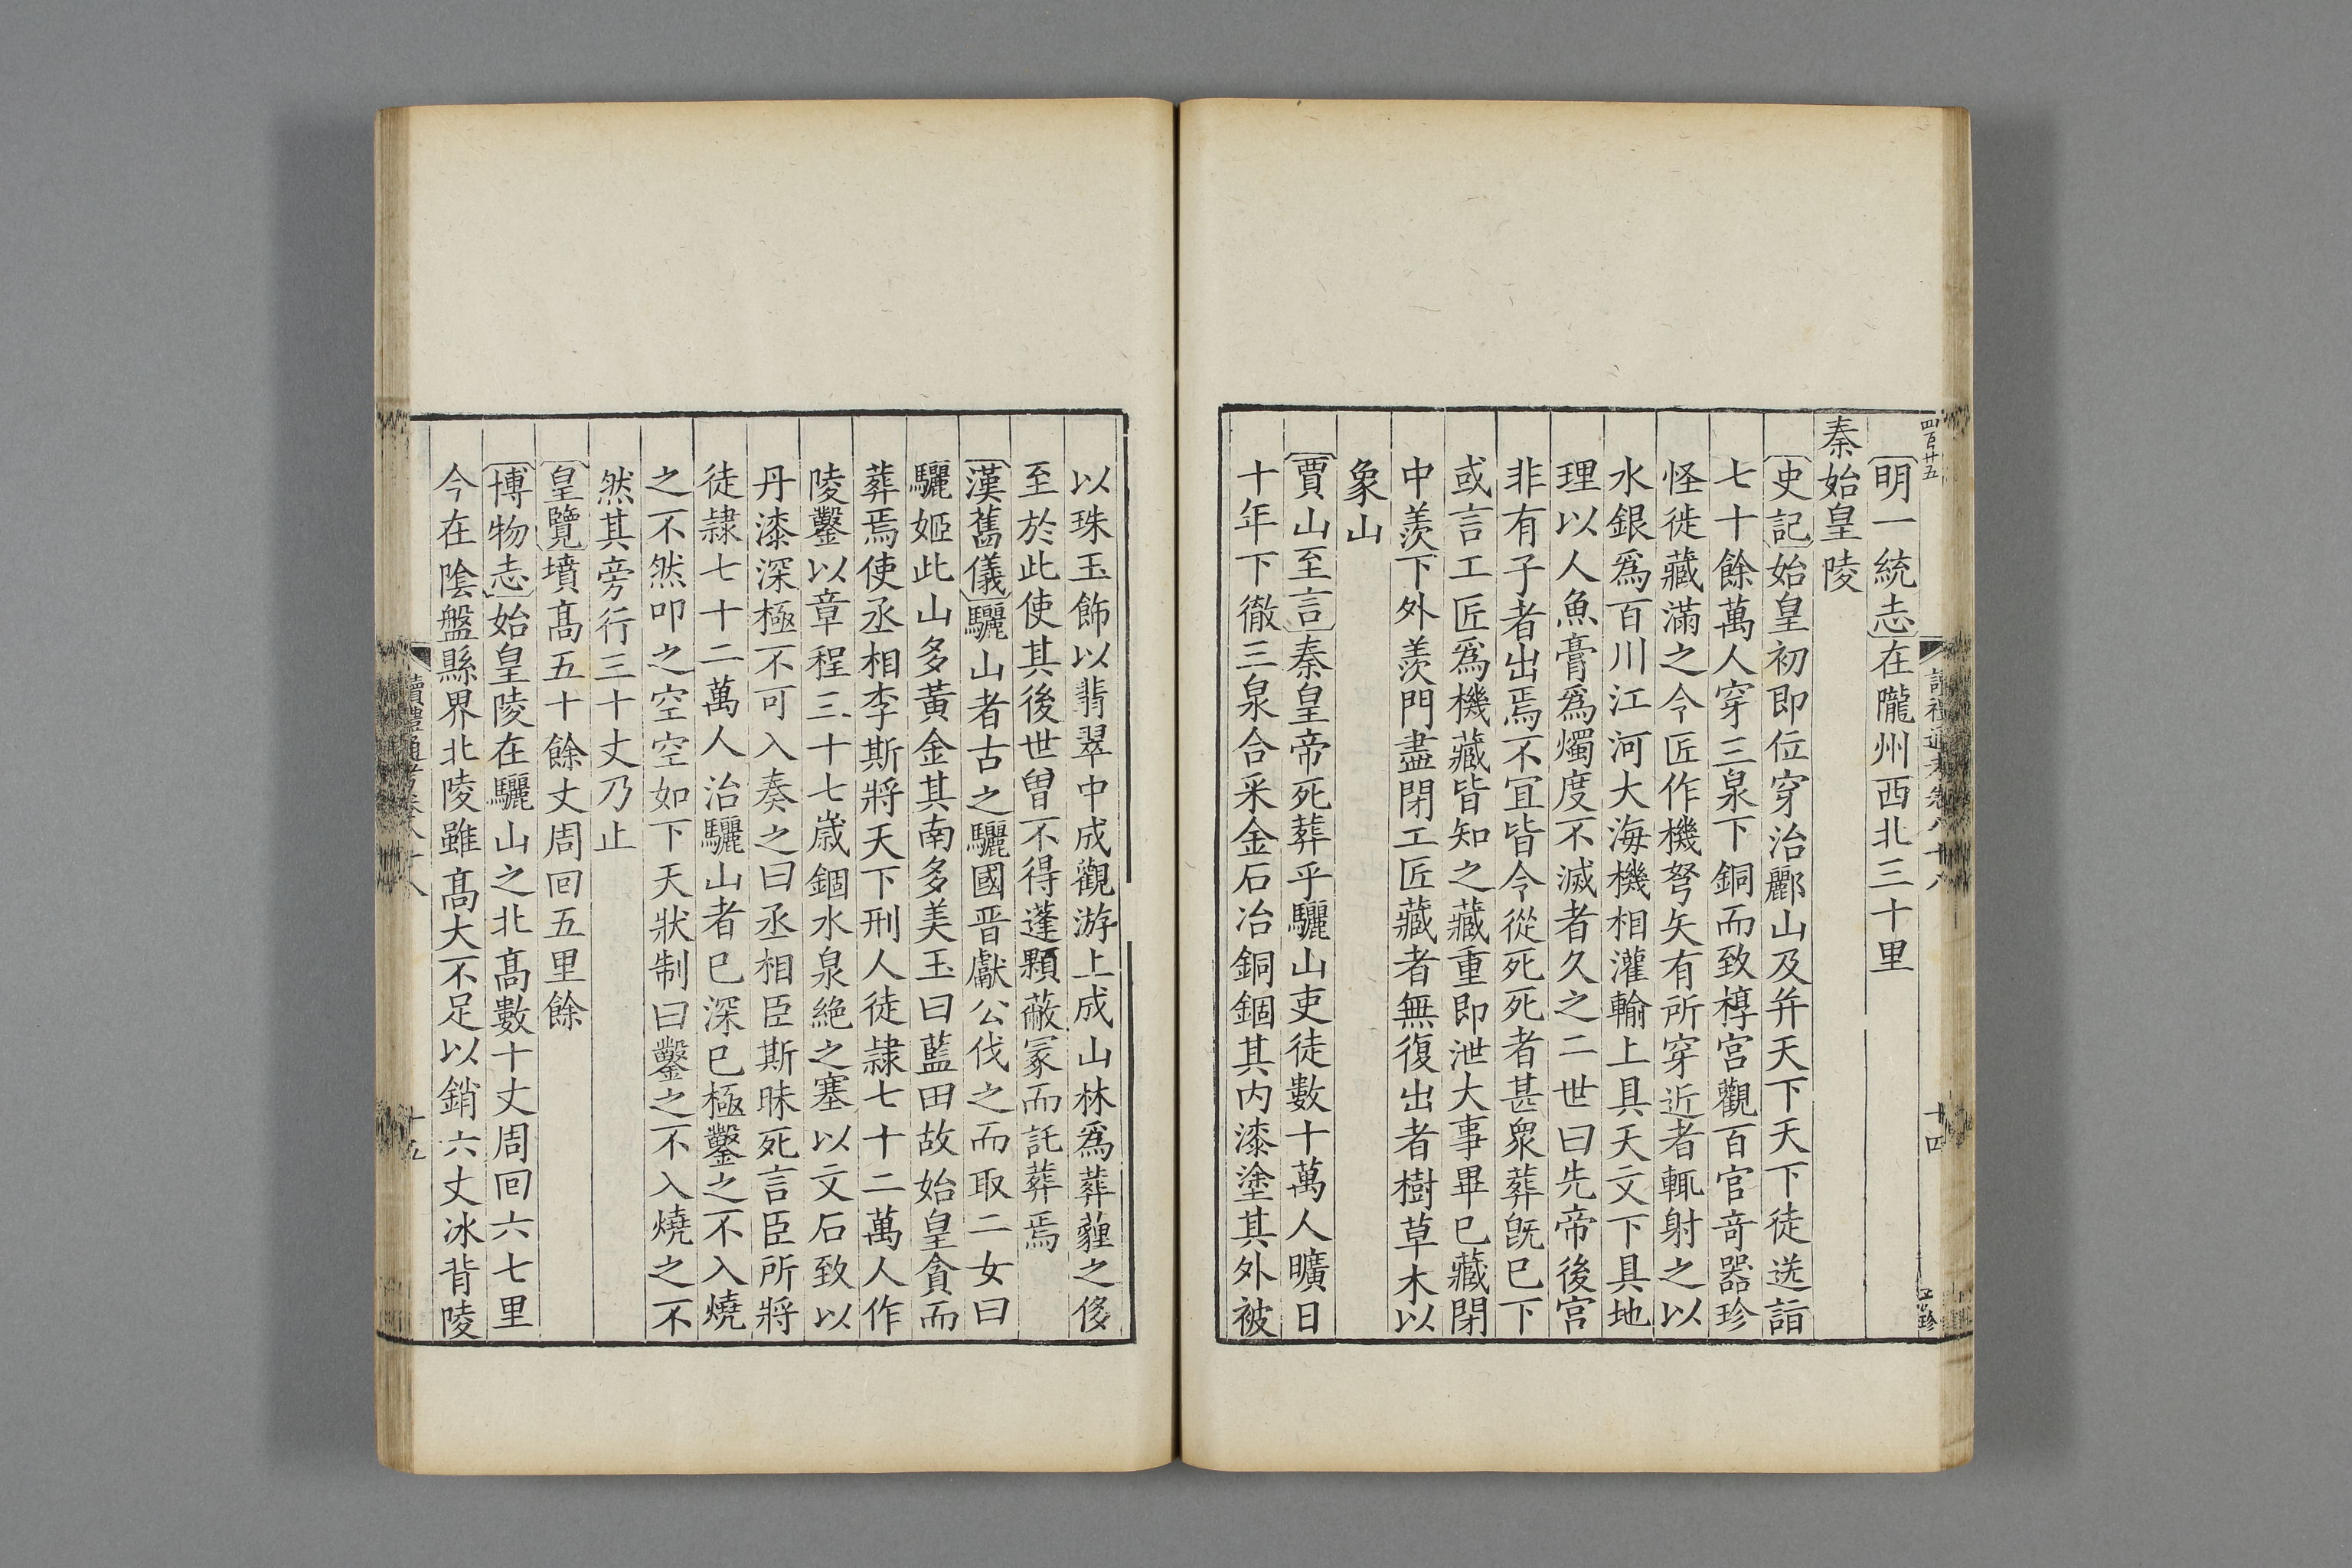 四百廿五
明一統志在隴州西北三十里
秦始皇陵
史記始皇初即位穿治酈山及幷天下天下徒送詣
七十餘萬人穿三泉下銅而致椁宮觀百官竒器珍
怪徙藏滿之令匠作機弩矢有所穿近者輒射之以
水銀爲百川江河大海機相灌輸上具天文下具地
理以人魚膏爲燭度不滅者久之二世曰先帝後宮
非有子者出焉不宜皆令從死死者甚衆葬旣已下
或言工匠爲機藏皆知之藏重即泄大事畢已藏閉
中羨下外羨門盡閉工匠藏者無復出者樹草木以
象山
賈山至言秦皇帝死葬乎驪山吏徒數十萬人曠日
十年下徹三泉合采金石冶銅錮其内漆塗其外被
以珠玉飾以翡翠中成觀游上成山林爲葬薶之侈
至於此使其後世曾不得蓬顆蔽冡而託葬焉
漢舊儀驪山者古之驪國晋獻公伐之而取二女曰
驪姬此山多黃金其南多美玉曰藍田故始皇貪而
葬焉使丞相李斯將天下刑人徒隷七十二萬人作
陵鑿以章程三十七嵗錮水泉絶之塞以文石致以
丹漆深極不可入奏之曰丞相臣斯昧死言臣所將
徒隷七十二萬人治驪山者已深已極鑿之不入燒
之不然叩之空空如下天狀制曰鑿之不入燒之不
然其旁行三十丈乃止
皇覽墳髙五十餘丈周回五里餘
博物志始皇陵在驪山之北髙數十丈周回六七里
今在陰盤縣界北陵雖髙大不足以銷六丈冰背陵
讀禮通考卷八十八
十五